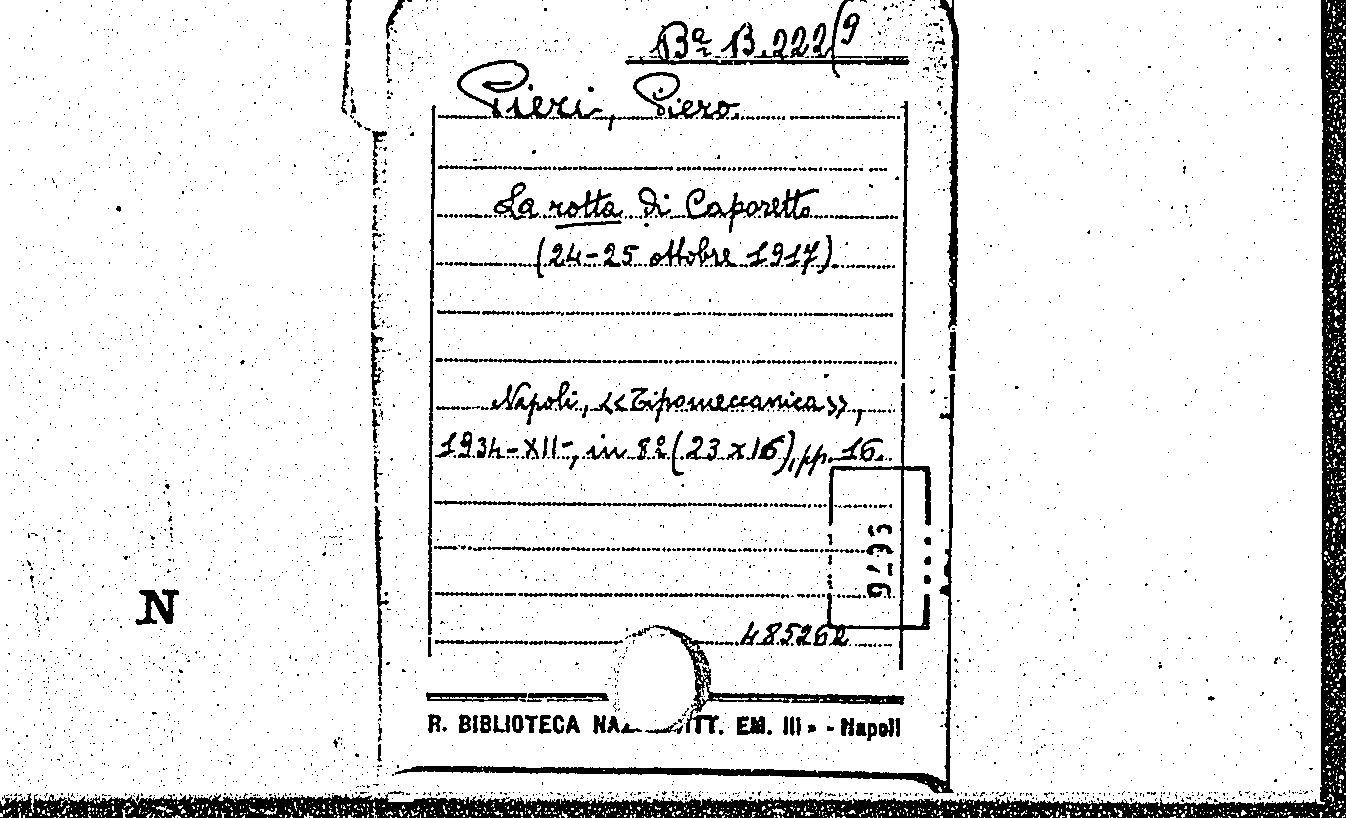 Bª B.222(9
Pieri, Piero.
La rotta di Caporetto
(24-25 ottobre 1917)
Napoli, «Tipomeccanica»,
1934-XII-, in 8º (23 x 16), pp. 16.
N
485262
R. BIBLIOTECA NAZ ITT. EM. III » - Napoli